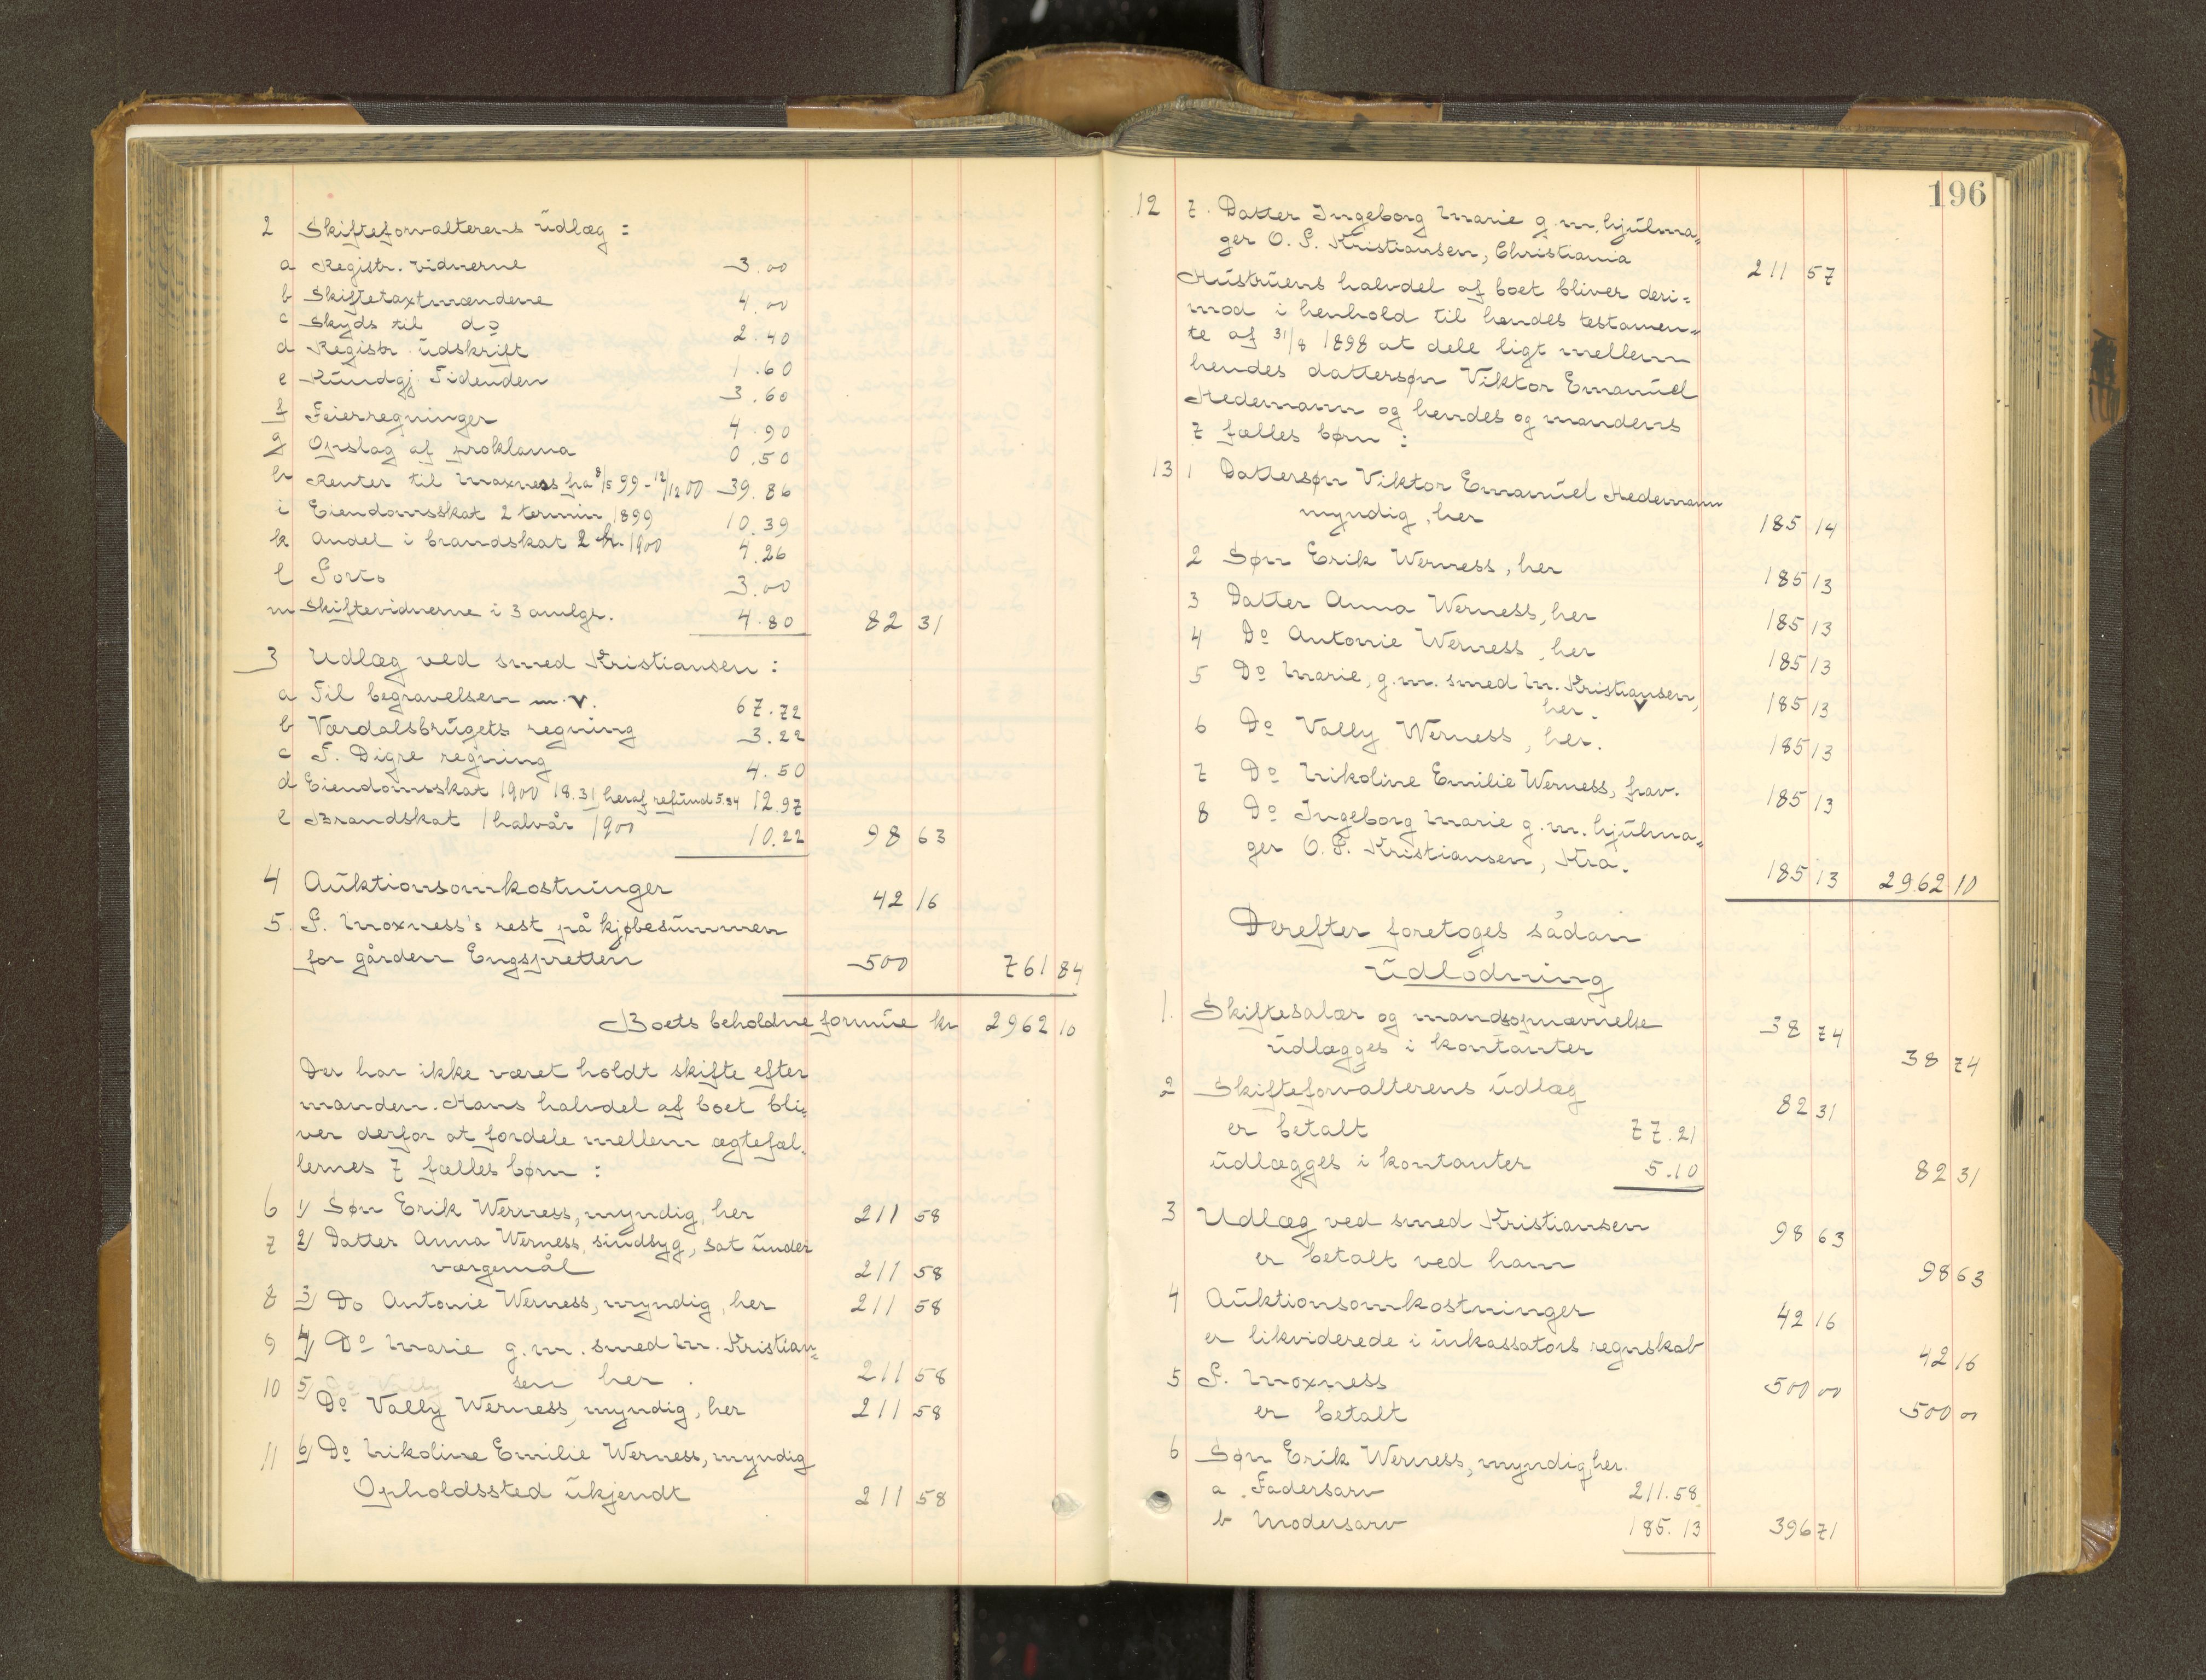 2 Skifteforvalterens udlæg :
a Registr. vidnerne 3.00
b Skiftetaxtmændene 4.00
c Skyds til do 2.40
d Registr. udskrift 1.60
e Kundgj. Tidenden 3.60
f Feierregninger 4.90
g Opslag af proklama 0.50
h Renter til Moxness fra 8/5 99 - 12/12 00 39.86
i Eiendomsskat 2 termin 1899 10.39
k Andel i brandskat 2 h. 1900 4.26
l Porto 3.00
m Skiftevidnerne i 3 amlgr. 4.80 82 31
3 Udlæg ved smed Kristiansen :
a Til begravelsen m.v. 67.72
b Værdalsbrugets regning 3.22
c T. Digre regning 4.50
d Eiendomsskat 1900 18.31 heraf refund 5.34 12.97
e Brandskat 1 halvår 1900 10.22 98 63
4 Auktionsomkostninger 42 16
5. P. Moxness's rest på kjøbesummen
for gården Engspretten 500 761 84
Boets beholdne formue kr 2962 10
Der har ikke været holdt skifte efter
manden. Hans halvdel af boet bli=
ver derfor at fordele mellem ægtefæl=
lernes 7 fælles børn :
6 1/ Søn Erik Werness, myndig, her 211 58
7 2/ Datter Anna Werness, sindsyg, sat under
værgemål 211 58
8 3/ Do Antonie Werness, myndig, her 211 58
9 4/ Do Marie g.m. smed M. Kristian=
sen her. 211 58
10 5/ Do Vally Werness, myndig, her 211 58
11 6/ Do Nikoline Emilie Werness, myndig
Opholdssted ukjendt 211 58
196
12 7. Datter Ingeborg Marie g.m. hjulma=
ger O. P. Kristiansen, Christiania 211 57
Hustruens halvdel af boet bliver deri=
mod i henhold til hendes testamen=
te af 31/8 1898 at dele ligt mellem
hendes dattersøn Viktor Emanuel
Hedemann og hendes og mandens
7 fælles børn :
13 1 Dattersøn Viktor Emanuel Hedemann
myndig, her 185 14
2 Søn Erik Werness, her 185 13
3 Datter Anna Werness, her 185 13
4 Do Antonie Werness, her 185 13
5 Do Marie, g.m. smed M. Kristiansen,
her. 185 13
6 Do Vally Werness, her. 185 13
7 Do Nikoline Emilie Werness, frav. 185 13
8 Do Ingeborg Marie g.m. hjulma=
ger O. P. Kristiansen, Kra. 185 13 2962 10
Derefter foretoges sådan
udlodning
1. Skiftesalær og mandsopnævnelse 38 74
udlægges i kontanter 38 74
2 Skifteforvalterens udlæg 82 31
er betalt 77.21
udlægges i kontanter 5.10 82 31
3 Udlæg ved smed Kristiansen 98 63
er betalt ved ham 98 63
4 Auktionsomkostninger 42 16
er likviderede i inkassators regnskab 42 16
5 P. Moxness 500 00
er betalt 500 00
6 Søn Erik Werness, myndig her.
a. Fadersarv 211.58
b Modersarv 185.13 396 71